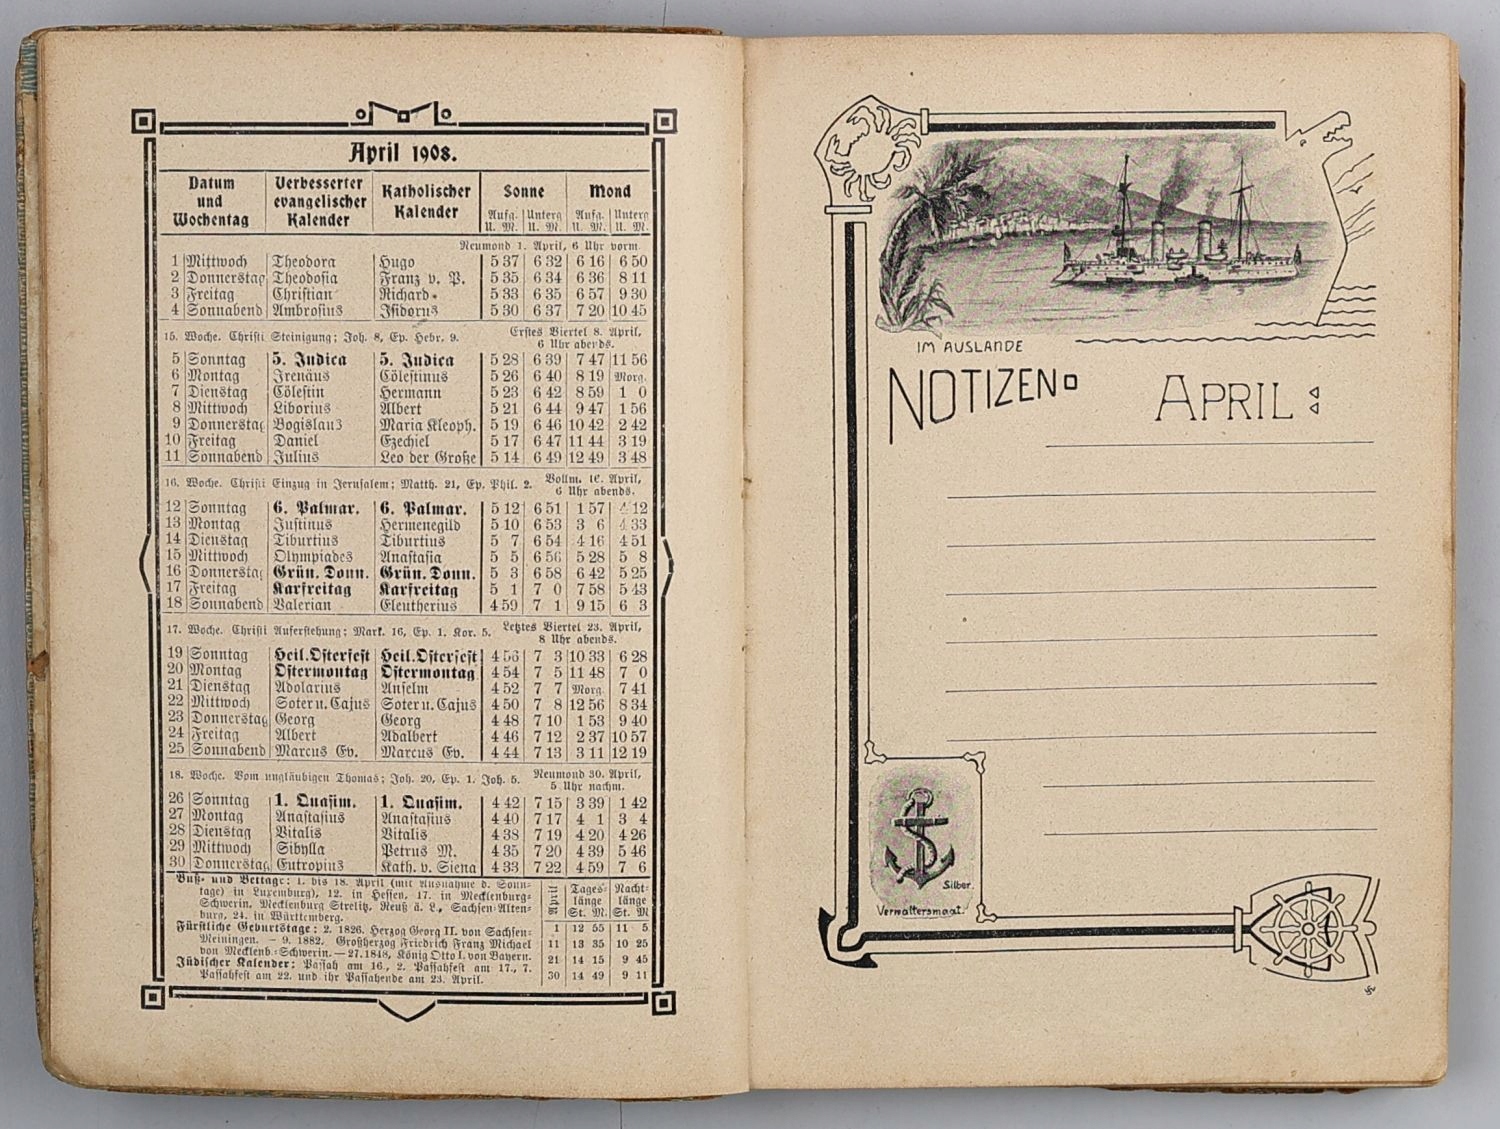 April 1908.
Datum und Wochentag | Verbesserter evangelischer Kalender | Katholischer Kalender | Sonne Aufg. U. M. | Unterg U. M. | Mond Aufg. U. M. | Unterg U. M.
Neumond 1. April, 6 Uhr vorm.
1 Mittwoch Theodora Hugo 5 37 6 32 6 16 6 50
2 Donnerstag Theodosia Franz v. P. 5 35 6 34 6 36 8 11
3 Freitag Christian Richard 5 33 6 35 6 57 9 30
4 Sonnabend Ambrosius Isidorus 5 30 6 37 7 20 10 45
15. Woche. Christi Steinigung; Joh. 8, Ep. Hebr. 9. Erstes Viertel 8. April, 6 Uhr abends.
5 Sonntag 5. Judica 5. Judica 5 28 6 39 7 47 11 56
6 Montag Irenäus Cölestinus 5 26 6 40 8 19 Morg.
7 Dienstag Cölestin Hermann 5 23 6 42 8 59 1 0
8 Mittwoch Liborius Albert 5 21 6 44 9 47 1 56
9 Donnerstag Bogislaus Maria Kleoph. 5 19 6 46 10 42 2 42
10 Freitag Daniel Ezechiel 5 17 6 47 11 44 3 19
11 Sonnabend Julius Leo der Große 5 14 6 49 12 49 3 48
16. Woche. Christi Einzug in Jerusalem; Matth. 21, Ep. Phil. 2. Vollm. April, 6 Uhr abends.
12 Sonntag 6. Palmar. 6. Palmar. 5 12 6 51 1 57 4 12
13 Montag Justinus Hermenegild 5 10 6 53 3 6 4 33
14 Dienstag Tiburtius Tiburtius 5 7 6 54 4 16 4 51
15 Mittwoch Olympiades Anastasia 5 5 6 56 5 28 5 8
16 Donnerstag Grün. Donn. Grün. Donn. 5 3 6 58 6 42 5 25
17 Freitag Karfreitag Karfreitag 5 1 7 0 7 58 5 43
18 Sonnabend Valerian Eleutherius 4 59 7 1 9 15 6 3
17. Woche. Christi Auferstehung; Mark. 16, Ep. 1. Kor. 5. Letztes Viertel 23. April, 8 Uhr abends.
19 Sonntag Heil. Osterfest Heil. Osterfest 4 56 7 3 10 33 6 28
20 Montag Ostermontag Ostermontag 4 54 7 5 11 48 7 0
21 Dienstag Adolarius Anselm 4 52 7 7 Morg. 7 41
22 Mittwoch Soter u. Cajus Soter u. Cajus 4 50 7 8 12 56 8 34
23 Donnerstag Georg Georg 4 48 7 10 1 53 9 40
24 Freitag Albert Adalbert 4 46 7 12 2 37 10 57
25 Sonnabend Marcus Ev. Marcus Ev. 4 44 7 13 3 11 12 19
18. Woche. Vom ungläubigen Thomas; Joh. 20, Ep. 1. Joh. 5. Neumond 30. April, 5 Uhr nachm.
26 Sonntag 1. Quasim. 1. Quasim. 4 42 7 15 3 39 1 42
27 Montag Anastasius Anastasius 4 40 7 17 4 1 3 4
28 Dienstag Vitalis Vitalis 4 38 7 19 4 20 4 26
29 Mittwoch Sibylla Petrus M. 4 35 7 20 4 39 5 46
30 Donnerstag Eutropius Kath. v. Siena 4 33 7 22 4 59 7 6
Buß- und Bettage: 1. bis 18. April (mit Ausnahme d. Sonn-
tage) in Luxemburg), 12. in Hessen, 17. in Mecklenburg-
Schwerin, Mecklenburg Strelitz, Reuß ä. L., Sachsen-Alten-
burg, 24. in Württemberg.
Fürstliche Geburtstage: 2. 1826. Herzog Georg II. von Sachsen-
Meiningen. — 9. 1882, Großherzog Friedrich Franz Michael
von Mecklenb.-Schwerin. — 27. 1848, König Otto I. von Bayern.
Jüdischer Kalender: Passah am 16., 2. Passahfest am 17., 7.
Passahfest am 22. und ihr Passahende am 23. April.
April | Tages-länge St. M. | Nacht-länge St. M
1 12 55 11 5
11 13 35 10 25
21 14 15 9 45
30 14 49 9 11
IM AUSLANDE
NOTIZEN APRIL
Silber.
Verwaltersmaat.